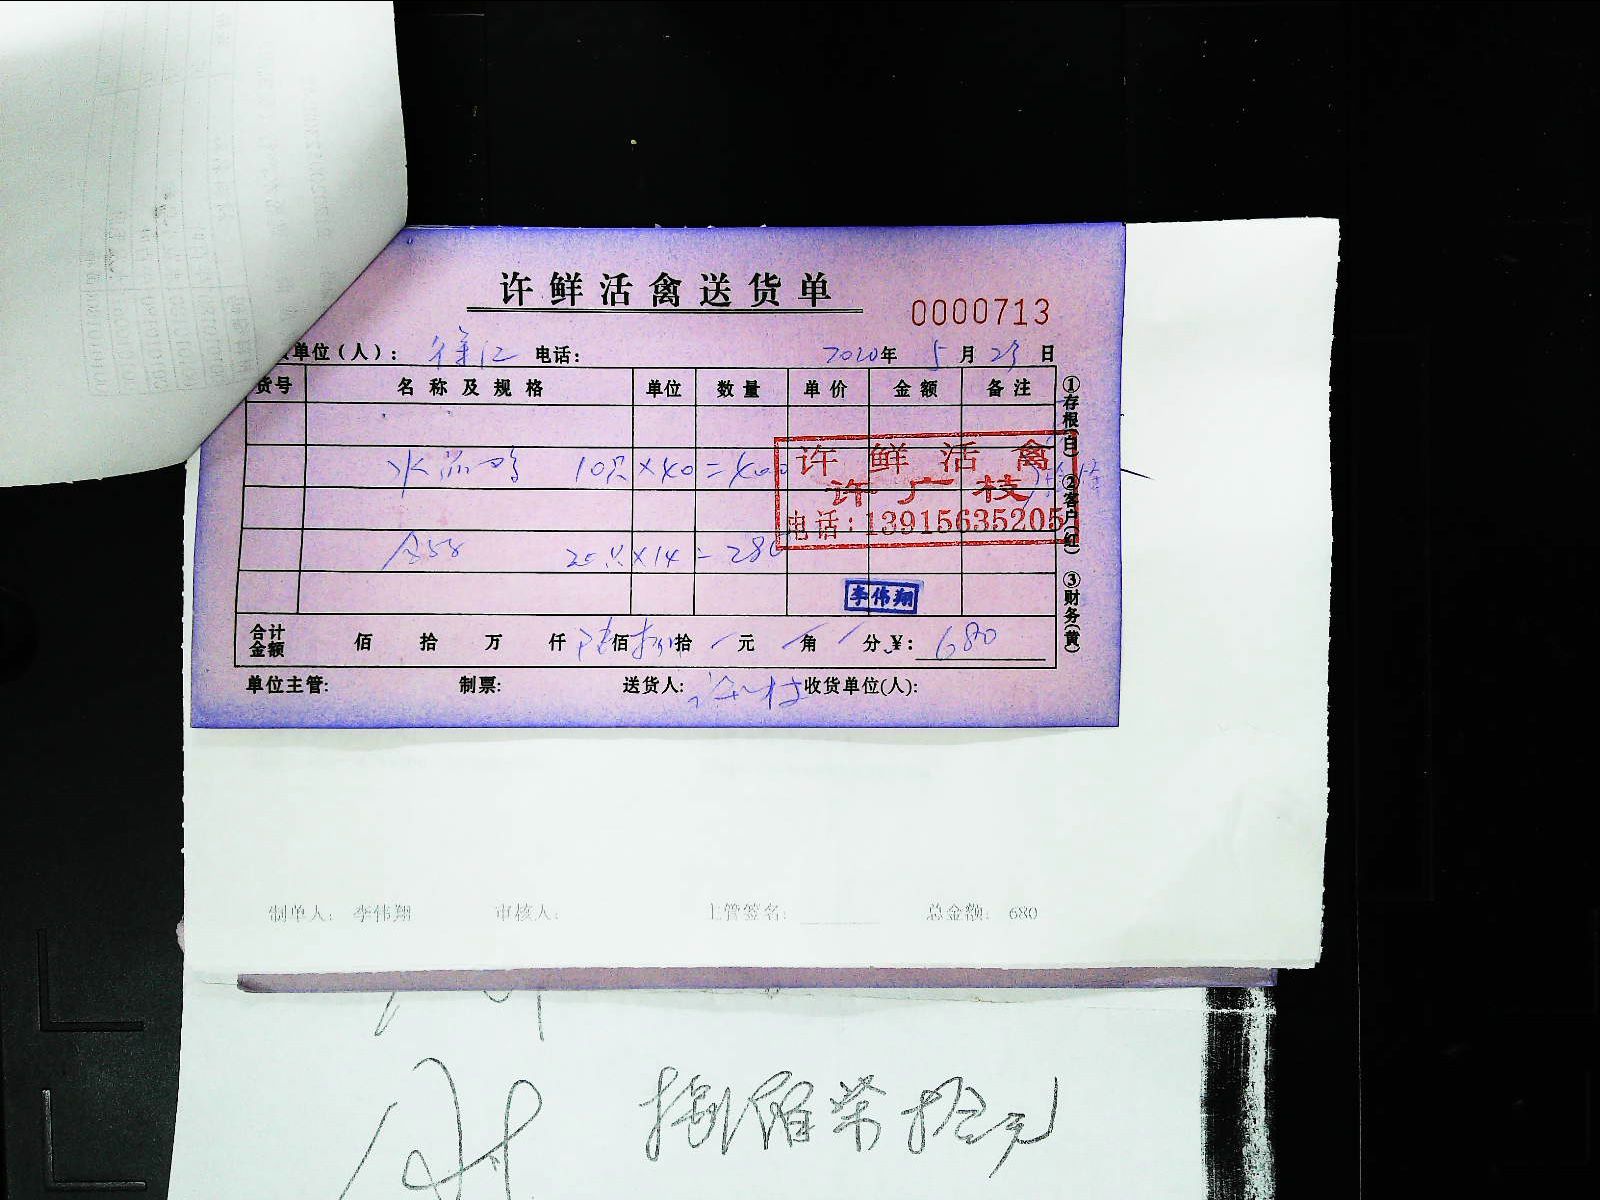 许鲜活禽送货单
0000713
单位(人): 徐江 电话: 2020年 5月 23日
货号 名称及规格 单位 数量 单价 金额 备注
10只×40=400
25 20只×14=280
许鲜活禽
许广枝
电话:13915635205
李伟翔
合计金额 佰 拾 万 仟 陆佰 捌拾 元 角 分 ¥: 680
单位主管: 制票: 送货人: 收货单位(人):
①存根(白) ②客户(红) ③财务(黄)
制单人: 李伟翔 审核人: 主管签名: 总金额: 680
捌佰柒拾元